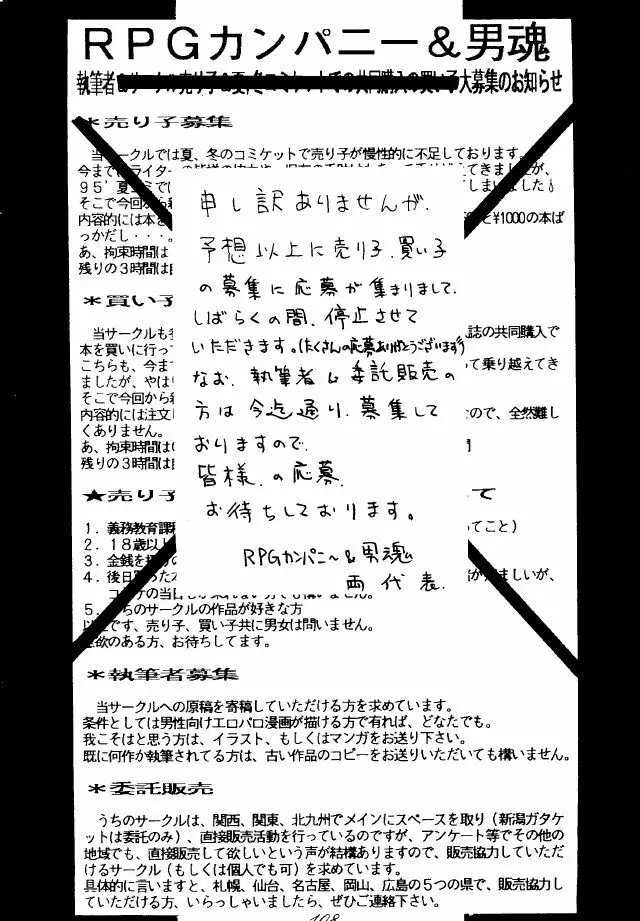 RPGカンパニー&男魂
執筆者
大募集のお知らせ
*売り子募集
当サークルでは夏、冬のコミケットで売り子が慢性的に不足しております。
今まで
てきましたが、
95'夏コミでは
しまいました
そこで今回から
と¥1000の本ば
内容的には本を
っかだし・・・。
あ、拘束時間は
残りの3時間は
*買い子
当サークルも
誌の共同購入で
本を買いに行っ
こちらも、今ま
て乗り越えてき
ましたが、やは
そこで今回から
内容的には注文
ので、全然難し
くありません。
あ、拘束時間は
残りの3時間は
★売り子
て
1.義務教育課
ってこと)
2.18歳以上
3.金銭を
4.後日
ましいが、
5.うちのサークルの作品が好きな方
以上です、売り子、買い子共に男女は問いません。
意欲のある方、お待ちしてます。
申し訳ありませんが、
予想以上に売り子、買い子
の募集に応募が集まりまして、
しばらくの間、停止させて
いただきます。(たくさんの応募ありがとうございます)
なお、執筆者&委託販売の
方は今迄通り、募集して
おりますので、
皆様、の応募、
お待ちしております。
RPGカンパニー&男魂
両代表.
*執筆者募集
当サークルへの原稿を寄稿していただける方を求めています。
条件としては男性向けエロパロ漫画が描ける方で有れば、どなたでも。
我こそはと思う方は、イラスト、もしくはマンガをお送り下さい。
既に何作か執筆されてる方は、古い作品のコピーをお送りいただいても構いません。
*委託販売
うちのサークルは、関西、関東、北九州でメインにスペースを取り(新潟ガタケ
ットは委託のみ)、直接販売活動を行っているのですが、アンケート等でその他の
地域でも、直接販売して欲しいという声が結構ありますので、販売協力していただ
けるサークル(もしくは個人でも可)を求めています。
具体的に言いますと、札幌、仙台、名古屋、岡山、広島の5つの県で、販売協力し
ていただける方、いらっしゃいましたら、ぜひご連絡下さい。
108